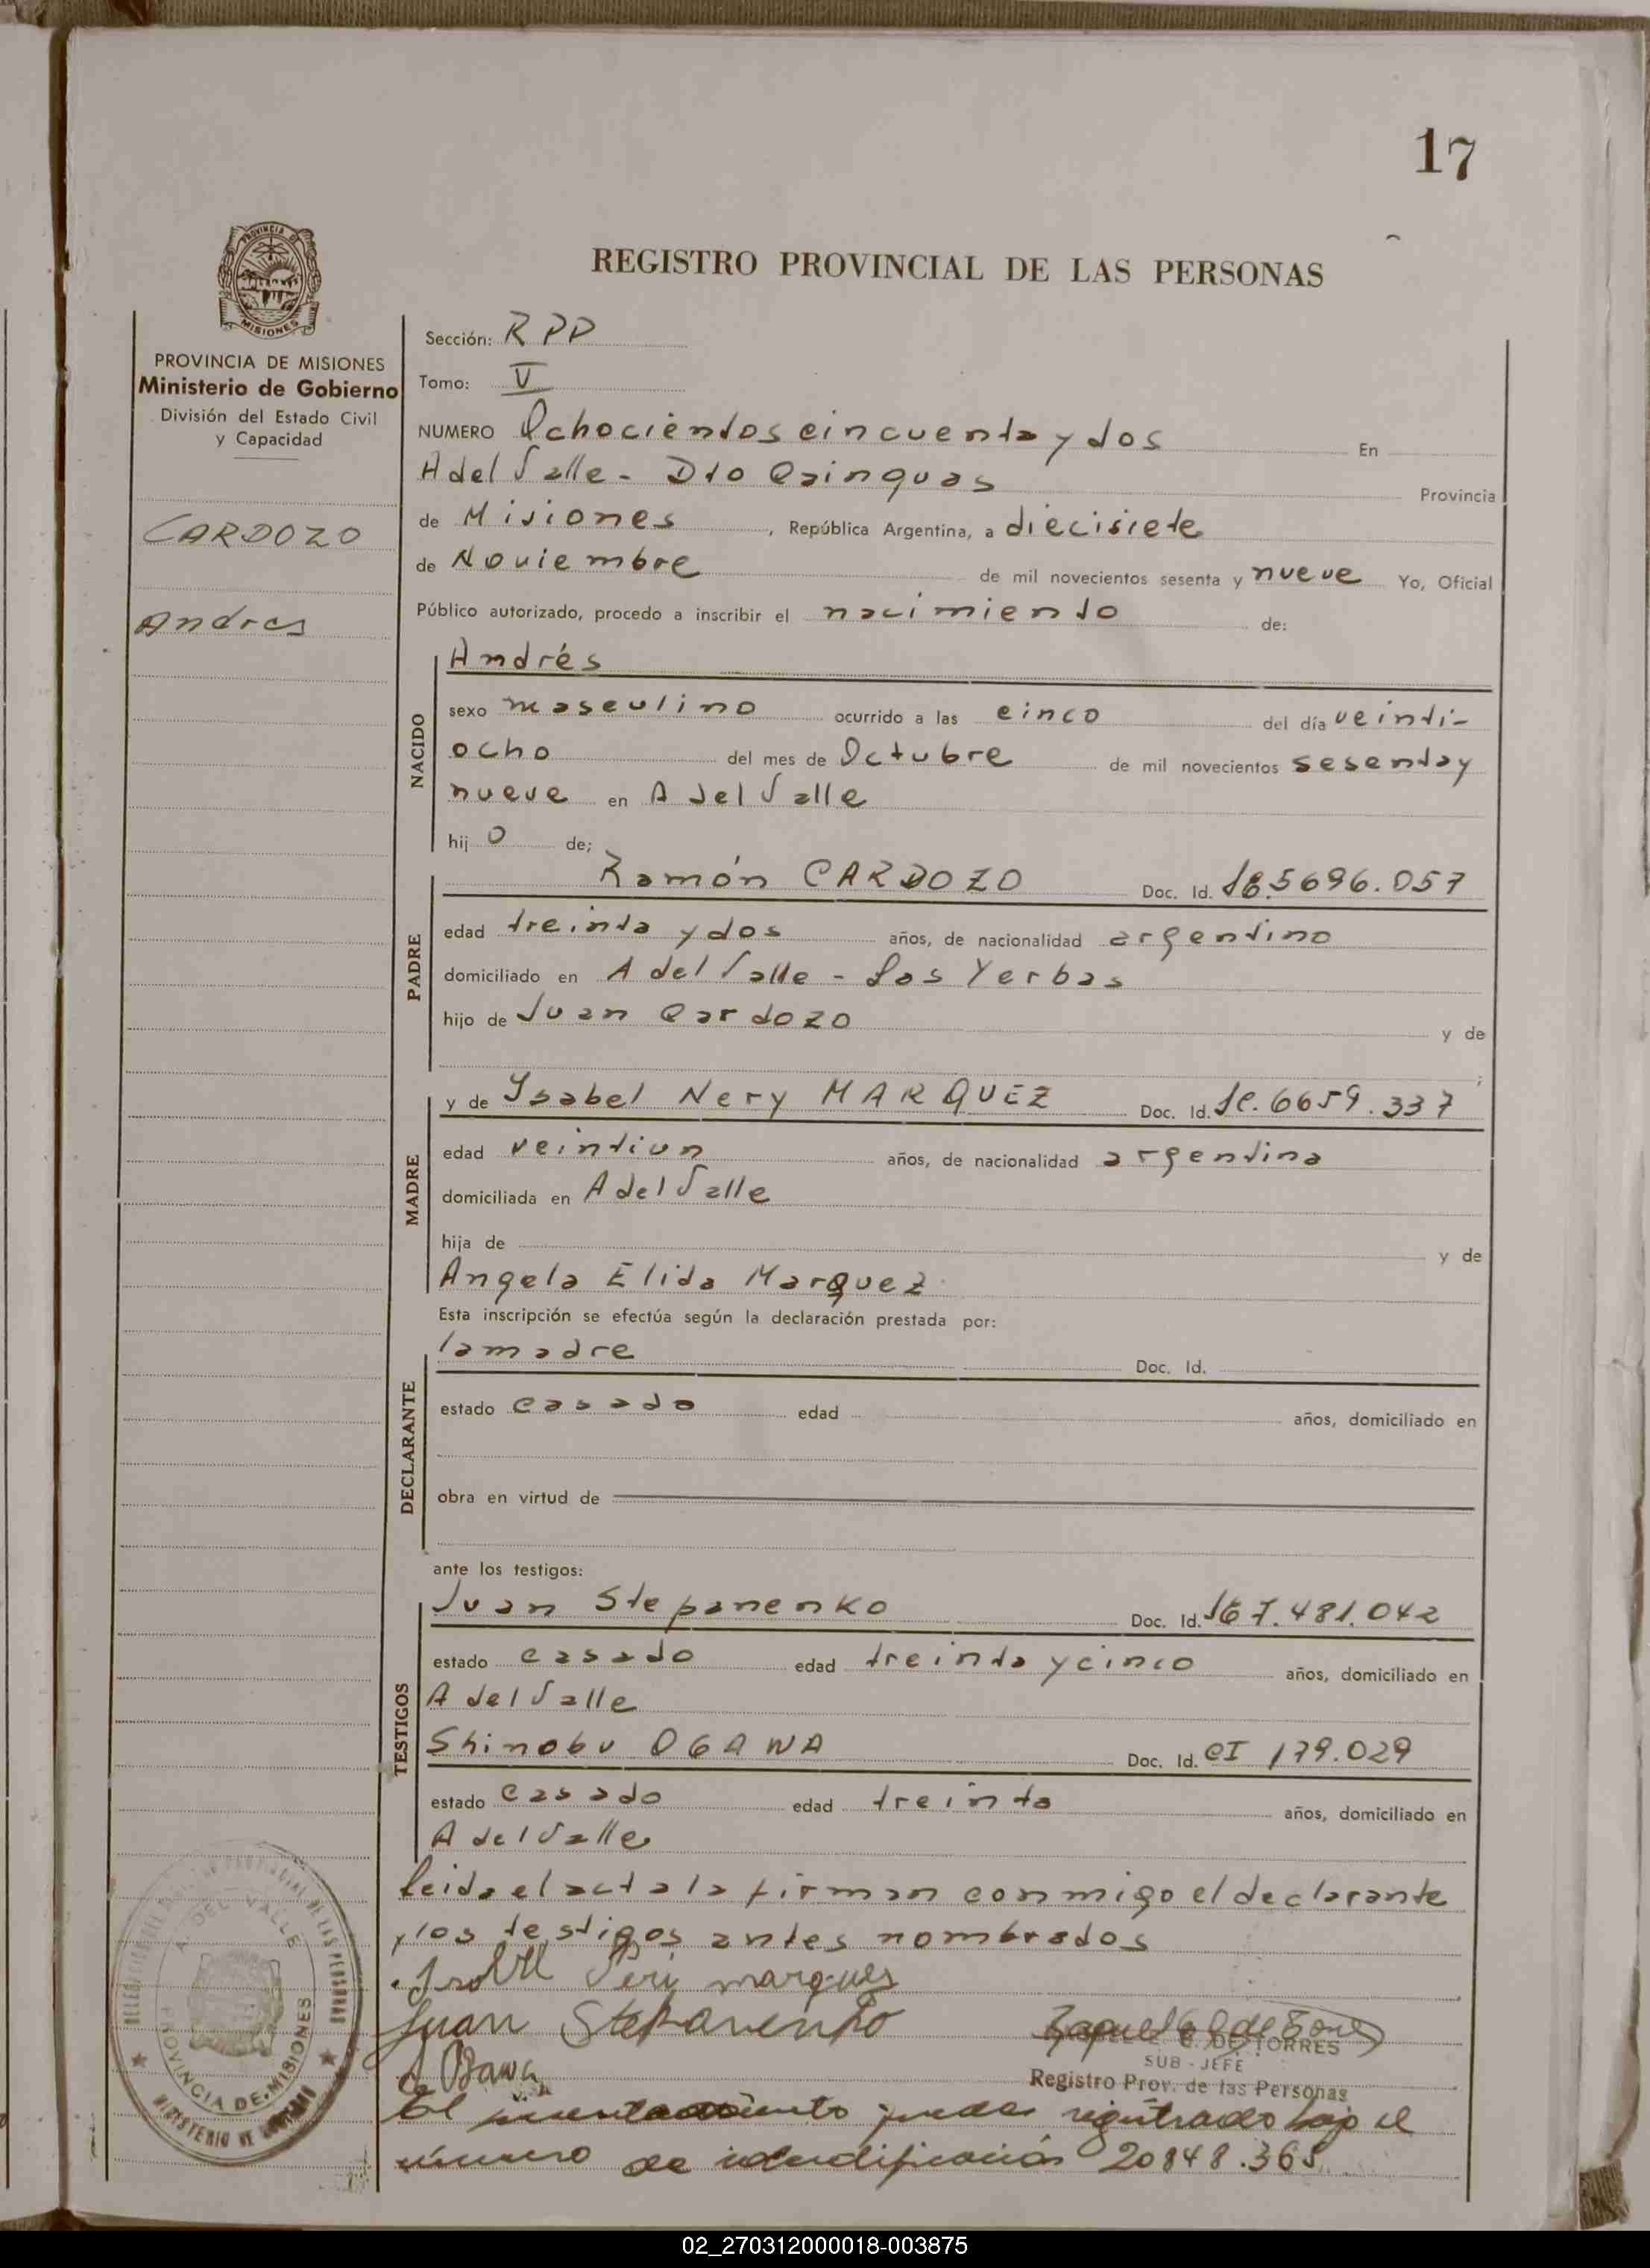 17
REGISTRO PROVINCIAL DE LAS PERSONAS
PROVINCIA DE MISIONES
Ministerio de Gobierno
División del Estado Civil
y Capacidad
CARDOZO
Andres
Sección: RPP
Tomo: V
NUMERO Ochocientos cincuenta y dos En
A del Valle - Dto Cainguas Provincia
de Misiones, República Argentina, a diecisiete
de Noviembre de mil novecientos sesenta y nueve Yo, Oficial
Público autorizado, procedo a inscribir el nacimiento de:
NACIDO
Andrés
sexo masculino ocurrido a las cinco del día veinti-
ocho del mes de Octubre de mil novecientos sesenta y
nueve en A del Valle
hij o de;
PADRE
Ramón CARDOZO Doc. Id. 5696.057
edad treinta y dos años, de nacionalidad argentino
domiciliado en A del Valle - Las Yerbas
hijo de Juan Cardozo y de
;
MADRE
y de Ysabel Nery MARQUEZ Doc. Id. 6659.337
edad veintiun años, de nacionalidad argentina
domiciliada en A del Valle
hija de y de
Angela Elida Marquez
Esta inscripción se efectúa según la declaración prestada por:
DECLARANTE
la madre Doc. Id.
estado casado edad años, domiciliado en
obra en virtud de
ante los testigos:
TESTIGOS
Juan Stepanenko Doc. Id. 7.481.042
estado casado edad treinta y cinco años, domiciliado en
A del Valle
Shinobu OGAWA Doc. Id. CI 179.029
estado casado edad treinta años, domiciliado en
A del Valle
Leida el acta la firman conmigo el declarante
y los testigos antes nombrados
marques
Juan Stepanenko
DE TORRES
SUB - JEFE
Registro Prov. de las Personas
El queda registrado bajo el
número de identificación 20848.365
A. DEL VALLE
PROVINCIA DE MISIONES
02_270312000018-003875